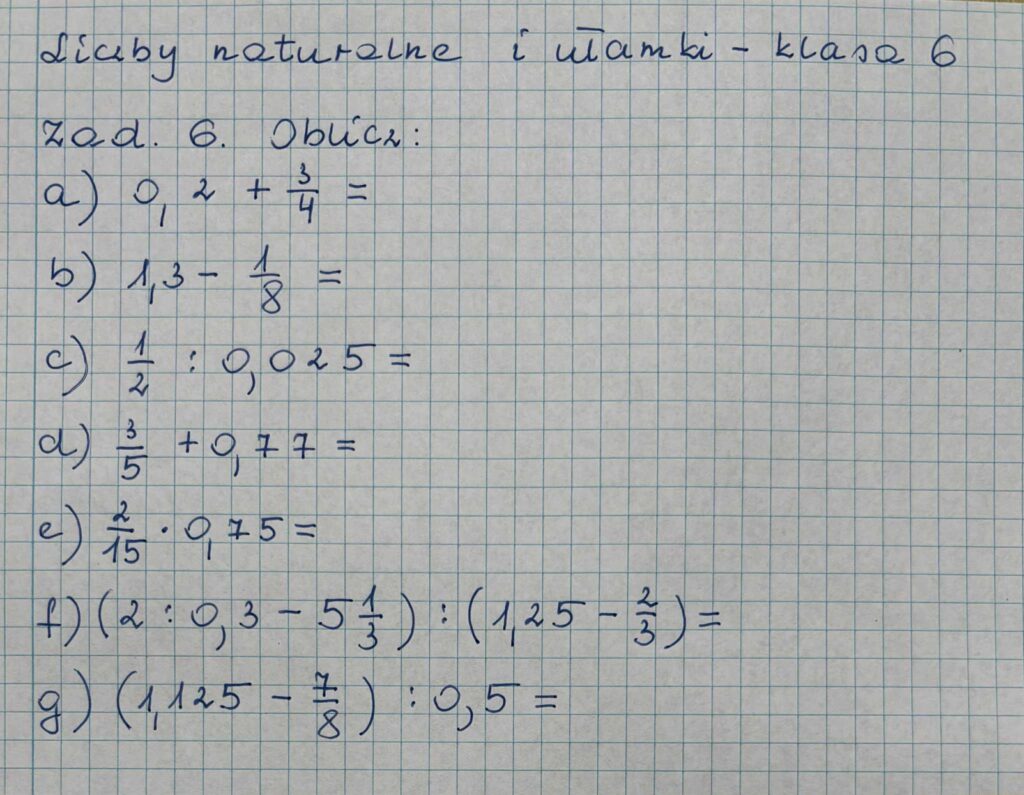 Liczby naturalne i ułamki - klasa 6
Zad. 6. Oblicz:
a) 0,2 + 3/4 =
b) 1,3 - 1/8 =
c) 1/2 : 0,025 =
d) 3/5 + 0,77 =
e) 2/15 · 0,75 =
f) (2 : 0,3 - 5 1/3) : (1,25 - 2/3) =
g) (1,125 - 7/8) : 0,5 =